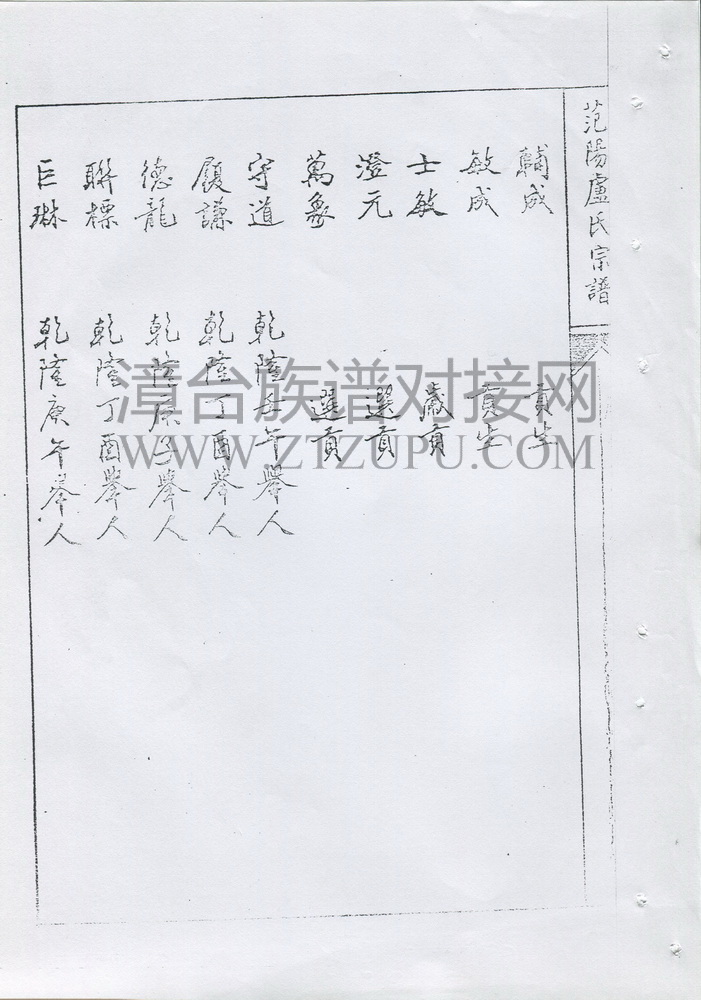 范陽盧氏宗譜
輔成 貢生
敏成 貢生
士敏 歲貢
澄元 選貢
萬象 選貢
守道 乾隆壬午舉人
履謙 乾隆丁酉舉人
德龍 乾隆庚子舉人
聯標 乾隆丁酉舉人
巨琳 乾隆庚午舉人
漳台族谱对接网
WWW.ZTZUPU.COM